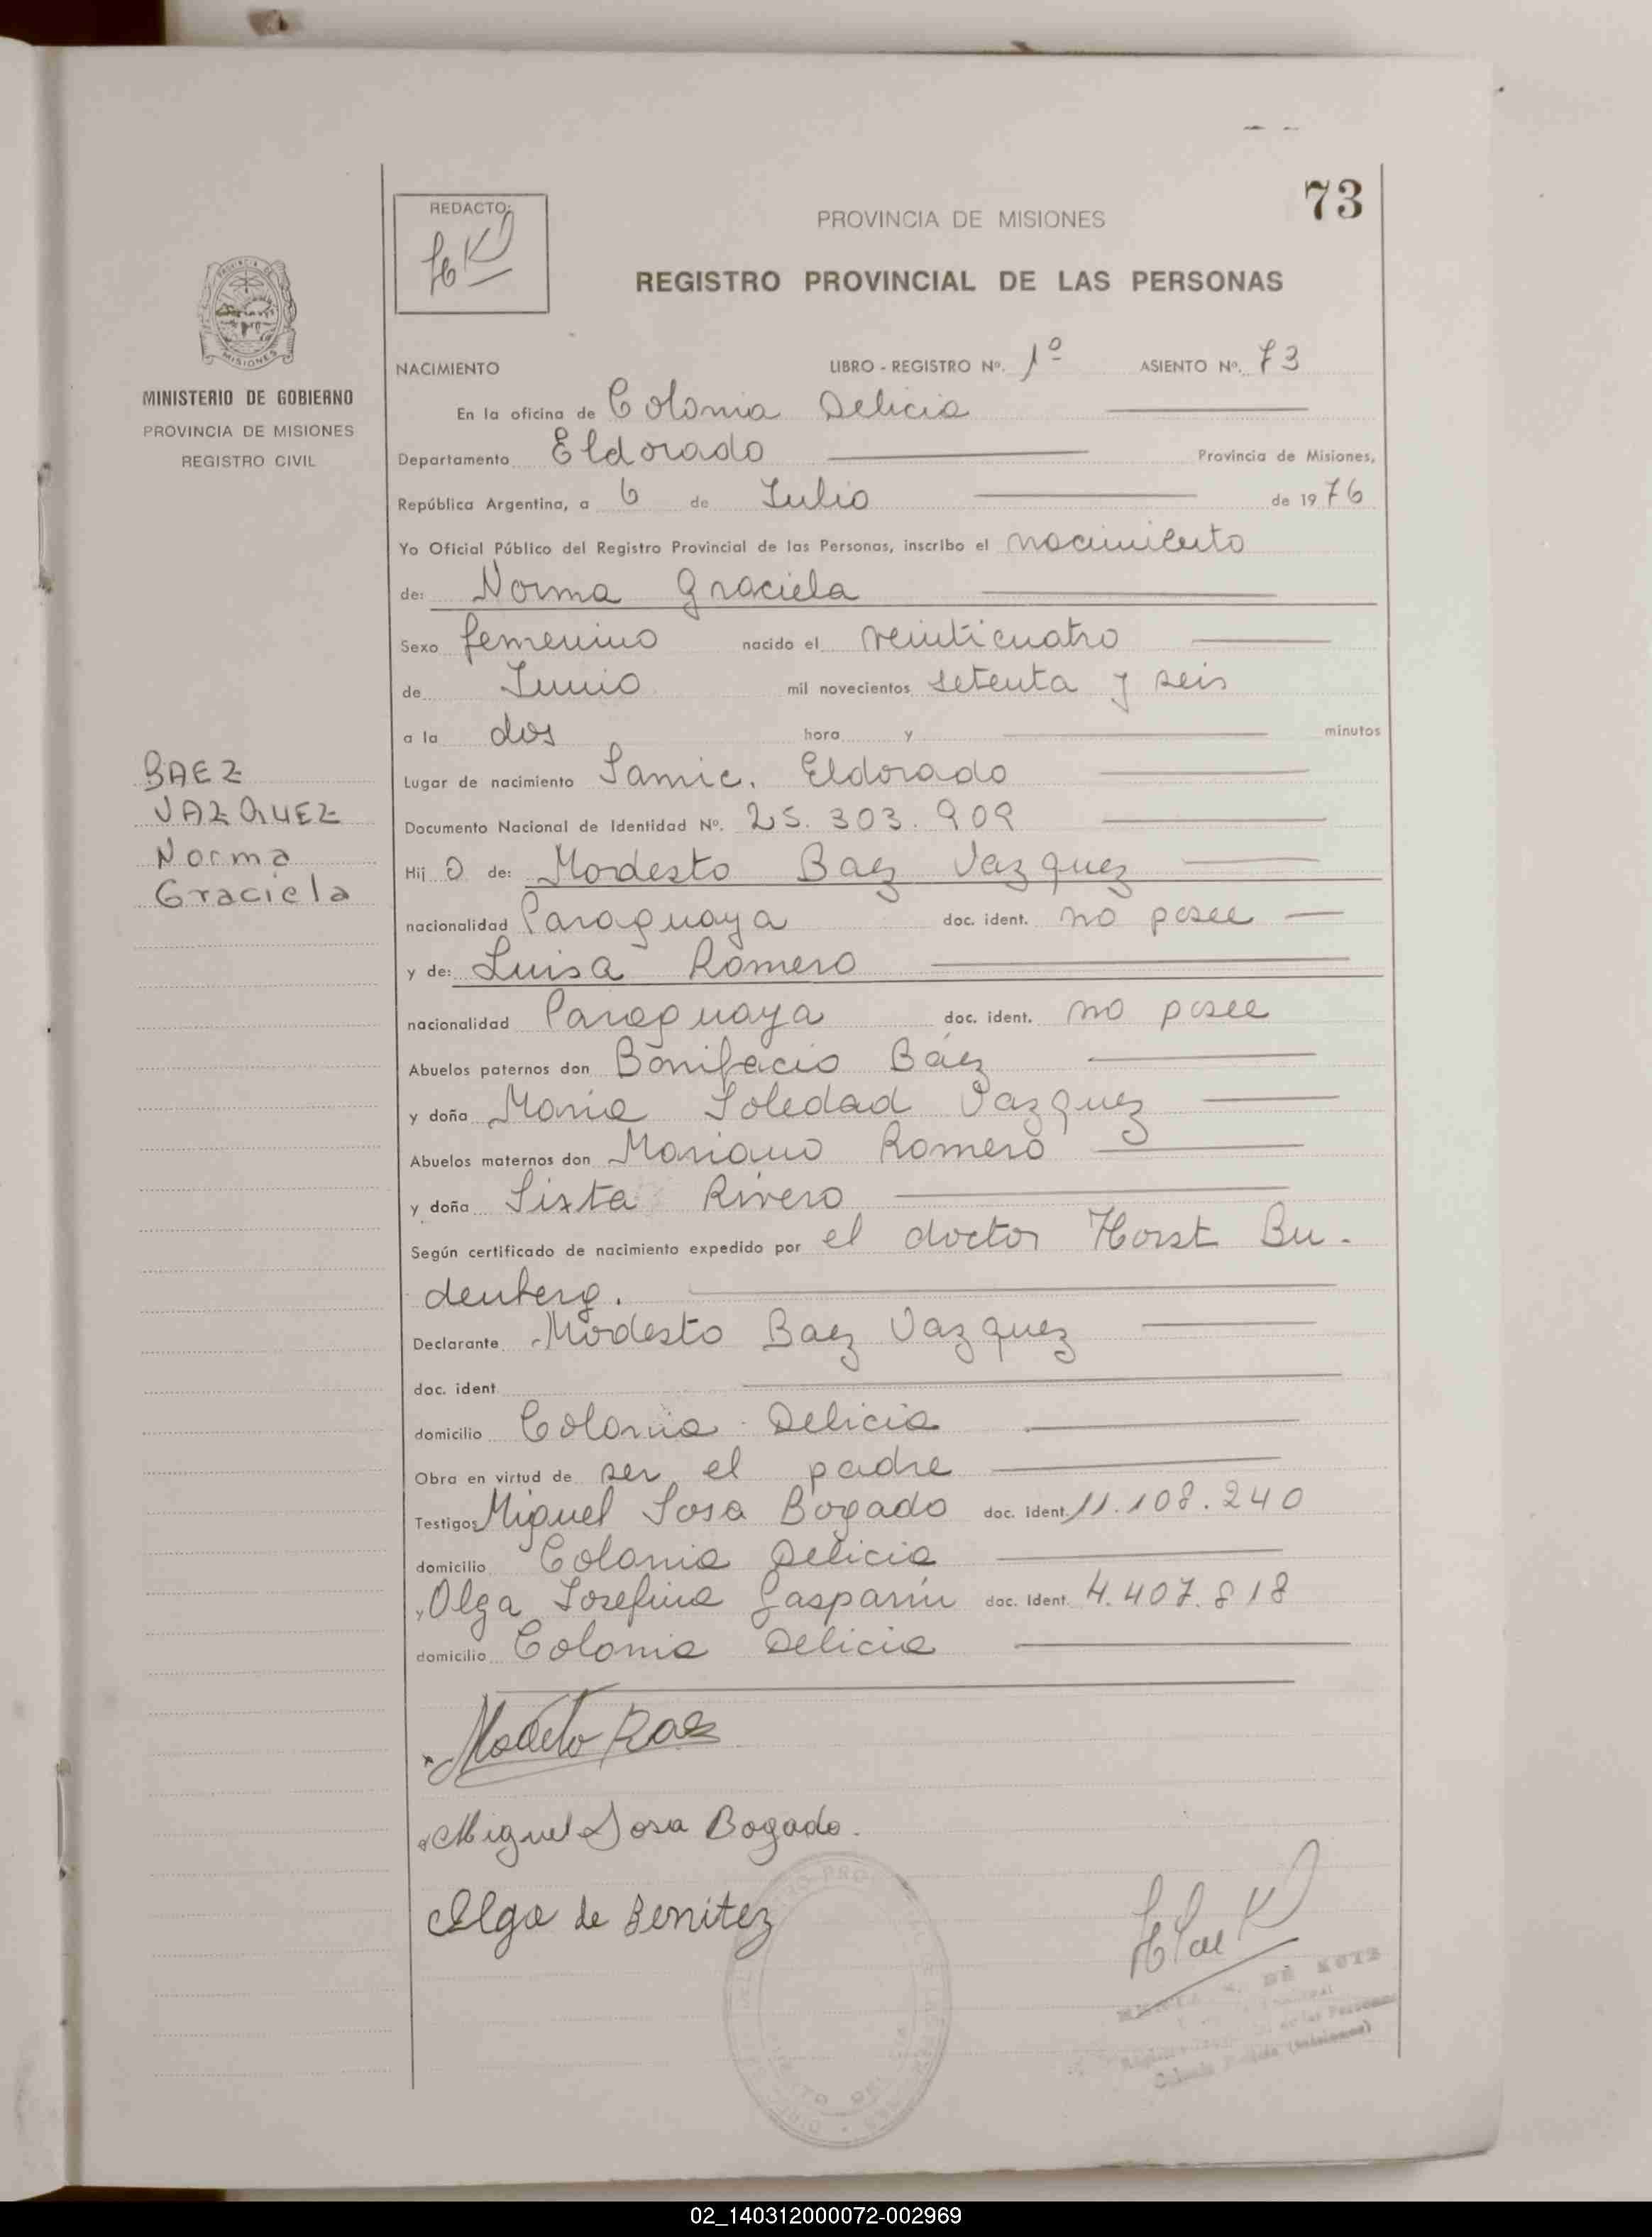 73
REDACTO:
PROVINCIA DE MISIONES
REGISTRO PROVINCIAL DE LAS PERSONAS
MISIONES
MINISTERIO DE GOBIERNO
PROVINCIA DE MISIONES
REGISTRO CIVIL
NACIMIENTO LIBRO - REGISTRO Nº. 1º ASIENTO Nº. 73
En la oficina de Colonia Delicia
Departamento Eldorado Provincia de Misiones,
República Argentina, a 6 de Julio de 1976
Yo Oficial Público del Registro Provincial de las Personas, inscribo el nacimiento
de: Norma Graciela
Sexo femenino nacido el veinticuatro
de Junio mil novecientos setenta y seis
a la dos hora y minutos
Lugar de nacimiento Samic. Eldorado
Documento Nacional de Identidad Nº. 25.303.909
BAEZ
VAZQUEZ
Norma
Graciela
Hij a de: Modesto Baez Vazquez
nacionalidad Paraguaya doc. ident. no posee
y de: Luisa Romero
nacionalidad Paraguaya doc. ident. no posee
Abuelos paternos don Bonifacio Báez
y doña Maria Soledad Vazquez
Abuelos maternos don Mariano Romero
y doña Sixta Rivero
Según certificado de nacimiento expedido por el doctor Horst Bu-
denberg.
Declarante Modesto Baez Vazquez
doc. ident.
domicilio Colonia Delicia
Obra en virtud de ser el padre
Testigos Miguel Sosa Bogado doc. ident. 11.108.240
domicilio Colonia Delicia
y Olga Josefina Gasparin doc. ident. 4.407.818
domicilio Colonia Delicia
Modesto Baez
Miguel Sosa Bogado.
Olga de Benitez
DE KOTZ
Colonia Delicia (Misiones)
02_140312000072-002969